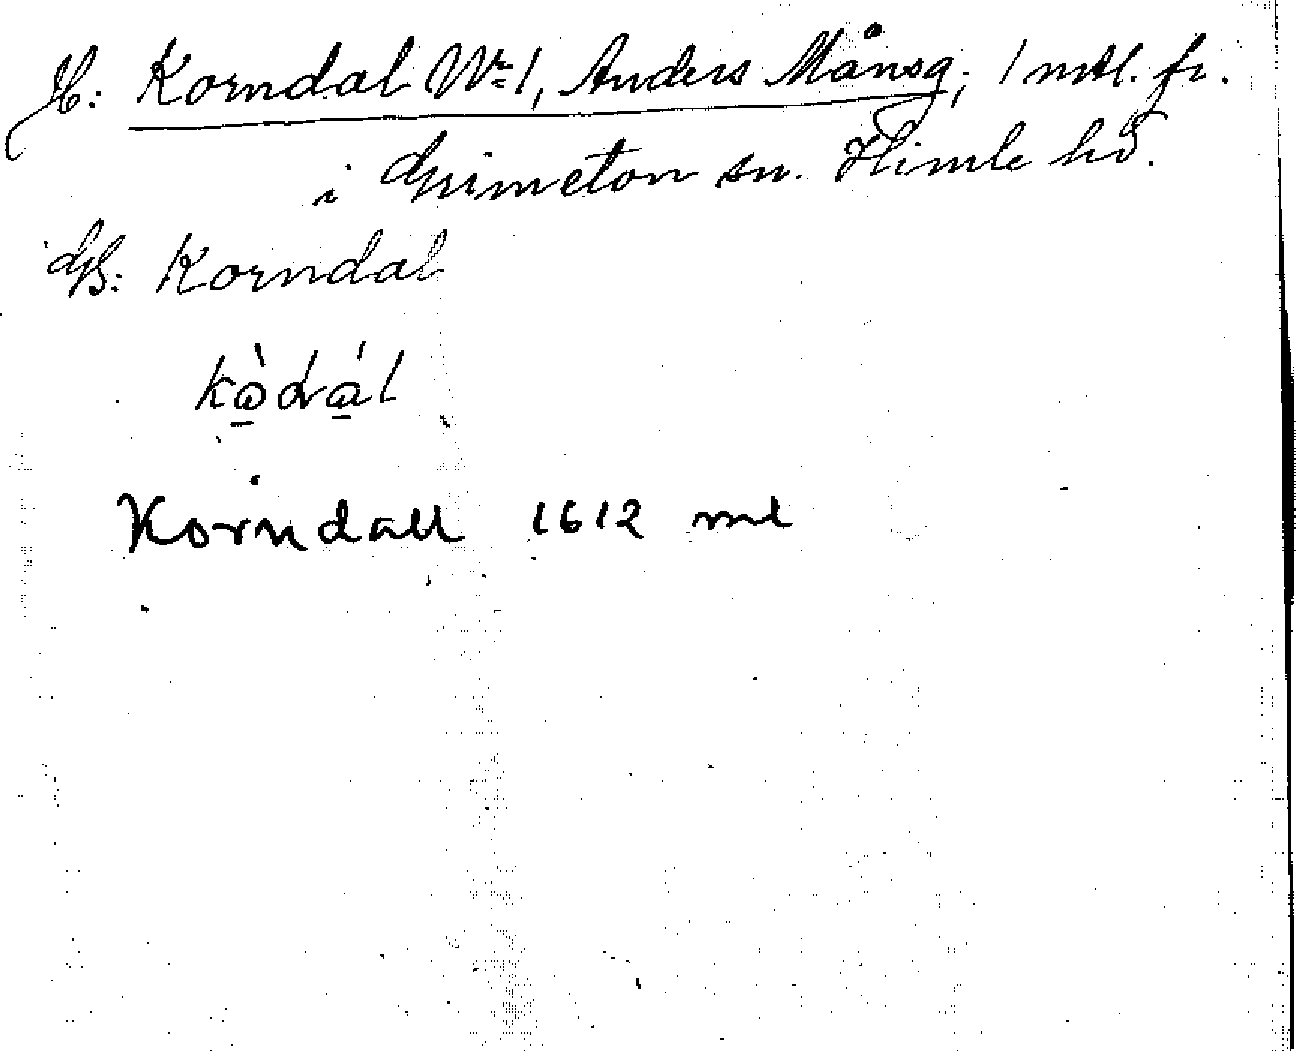 H: Korndal Nr 1, Anders Månsg, 1 mtl. fr.
i Grimeton sn. Himle hd.
GB: Korndal
Korndall 1612 ml